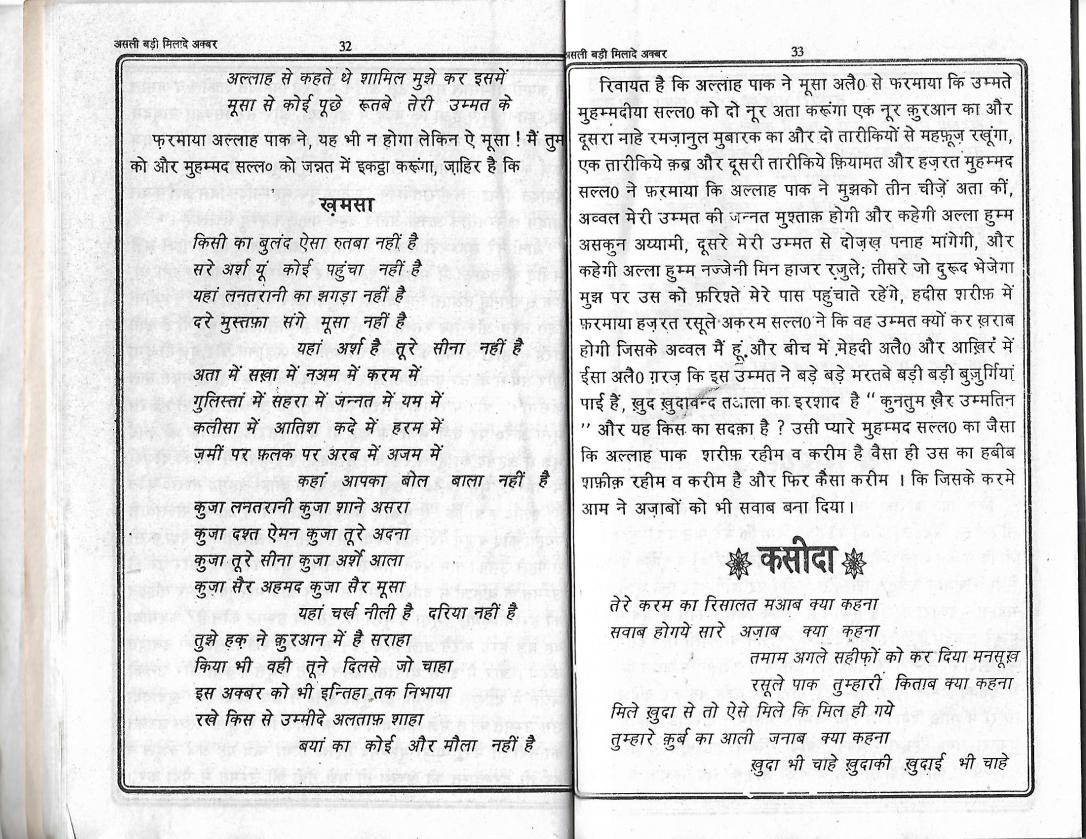 असली बड़ी मिलादे अक्बर 32
अल्लाह से कहते थे शामिल मुझे कर इसमें
मूसा से कोई पूछे रूतबे तेरी उम्मत के
फरमाया अल्लाह पाक ने, यह भी न होगा लेकिन ऐ मूसा ! मैं तुम
को और मुहम्मद सल्ल० को जन्नत में इकट्ठा करूंगा, ज़ाहिर है कि
ख़मसा
किसी का बुलंद ऐसा रुतबा नहीं है
सरे अर्श यूं कोई पहुंचा नहीं है
यहां लनतरानी का झगड़ा नहीं है
दरे मुस्तफ़ा संगे मूसा नहीं है
यहां अर्श है तूरे सीना नहीं है
अता में सख़ा में नअम में करम में
गुलिस्तां में सहरा में जन्नत में यम में
कलीसा में आतिश कदे में हरम में
ज़मीं पर फ़लक पर अरब में अजम में
कहां आपका बोल बाला नहीं है
कुजा लनतरानी कुजा शाने असरा
कुजा दश्त ऐमन कुजा तूरे अदना
कुजा तूरे सीना कुजा अर्शे आला
कुजा सैर अहमद कुजा सैर मूसा
यहां चर्ख नीली है दरिया नहीं है
तुझे हक़ ने क़ुरआन में है सराहा
किया भी वही तूने दिलसे जो चाहा
इस अक्बर को भी इन्तिहा तक निभाया
रखे किस से उम्मीदे अलताफ़ शाहा
बयां का कोई और मौला नहीं है
असली बड़ी मिलादे अक्बर 33
रिवायत है कि अल्लाह पाक ने मूसा अलै० से फरमाया कि उम्मते
मुहम्मदीया सल्ल० को दो नूर अता करूंगा एक नूर क़ुरआन का और
दूसरा माहे रमज़ानुल मुबारक का और दो तारीकियों से महफ़ूज रखूंगा,
एक तारीकिये क़ब्र और दूसरी तारीकिये क़ियामत और हज़रत मुहम्मद
सल्ल० ने फ़रमाया कि अल्लाह पाक ने मुझको तीन चीज़ें अता कीं,
अव्वल मेरी उम्मत की जन्नत मुश्ताक़ होगी और कहेगी अल्ला हुम्म
असकुन अय्यामी, दूसरे मेरी उम्मत से दोज़ख़ पनाह मांगेगी, और
कहेगी अल्ला हुम्म नज्जेनी मिन हाजर रजुले; तीसरे जो दुरूद भेजेगा
मुझ पर उस को फ़रिश्ते मेरे पास पहुंचाते रहेंगे, हदीस शरीफ़ में
फ़रमाया हज़रत रसूले अकरम सल्ल० ने कि वह उम्मत क्यों कर ख़राब
होगी जिसके अव्वल मैं हूं और बीच में मेहदी अलै० और आख़िर में
ईसा अलै० ग़रज़ कि इस उम्मत ने बड़े बड़े मरतबे बड़ी बड़ी बुज़ुर्गियां
पाई हैं, ख़ुद ख़ुदावन्द तआला का इरशाद है “ कुनतुम ख़ैर उम्मतिन
” और यह किस का सदक़ा है ? उसी प्यारे मुहम्मद सल्ल० का जैसा
कि अल्लाह पाक शरीफ़ रहीम व करीम है वैसा ही उस का हबीब
शफ़ीक़ रहीम व करीम है और फिर कैसा करीम । कि जिसके करमे
आम ने अज़ाबों को भी सवाब बना दिया।
कसीदा
तेरे करम का रिसालत मआब क्या कहना
सवाब होगयें सारे अज़ाब क्या कहना
तमाम अगले सहीफ़ों को कर दिया मनसूख़
रसूले पाक तुम्हारी किताब क्या कहना
मिले ख़ुदा से तो ऐसे मिले कि मिल ही गये
तुम्हारे क़ुर्ब का आली जनाब क्या कहना
ख़ुदा भी चाहे ख़ुदाकी ख़ुदाई भी चाहे